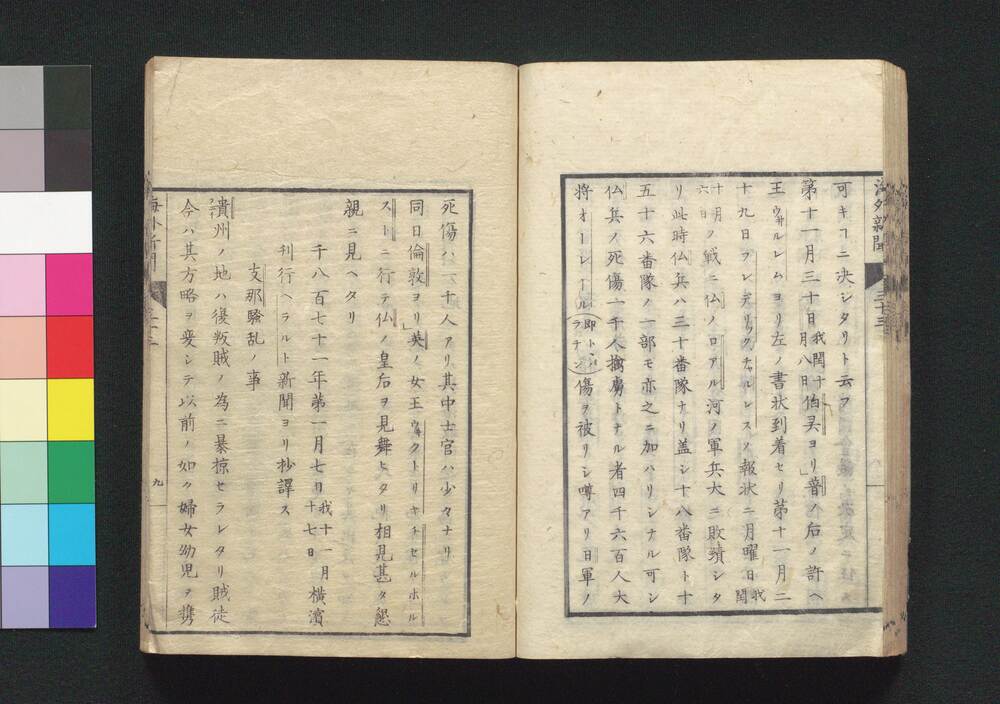 海外新聞 三十三
可キヿニ決シタリト云フ
第十一月三十日我閏十月八日伯霊ヨリ」普ノ后ノ許ヘ
王ウヰルレムヨリ左ノ書状到着セリ第十一月二
十九日フレデリックチャルレスノ報状ニ月曜日我閏
十月六日ノ戦ニ仏ノロアル河ノ軍兵大ニ敗績シタ
リ此時仏兵ハ三十番隊ナリ盖シ十八番隊ト十
五十六番隊ノ一部モ亦之ニ加ハリシナル可シ
仏兵ノ死傷一千人擒虜トナル者四千六百人大
将オーレ 傷ヲ被リシ噂アリ日軍ノ
死傷ハ 十人アリ其中士官ハ少々ナリ
同日倫敦ヨリ」英ノ女王ウヰクトリヤチセルホル
ストニ行テ仏ノ皇后ヲ見舞ヒタリ相見甚タ懇
親ニ見ヘタリ
千八百七十一年第一月七日我十一月十七日横濱
刊行ヘラルト新聞ヨリ抄譯ス
支那騒乱ノ事
貴州ノ地ハ復叛賊ノ為ニ暴掠セラレタリ賊徒
今ハ其方略ヲ変シテ以前ノ如ク婦女幼児ヲ携
海外新聞 三十三
九